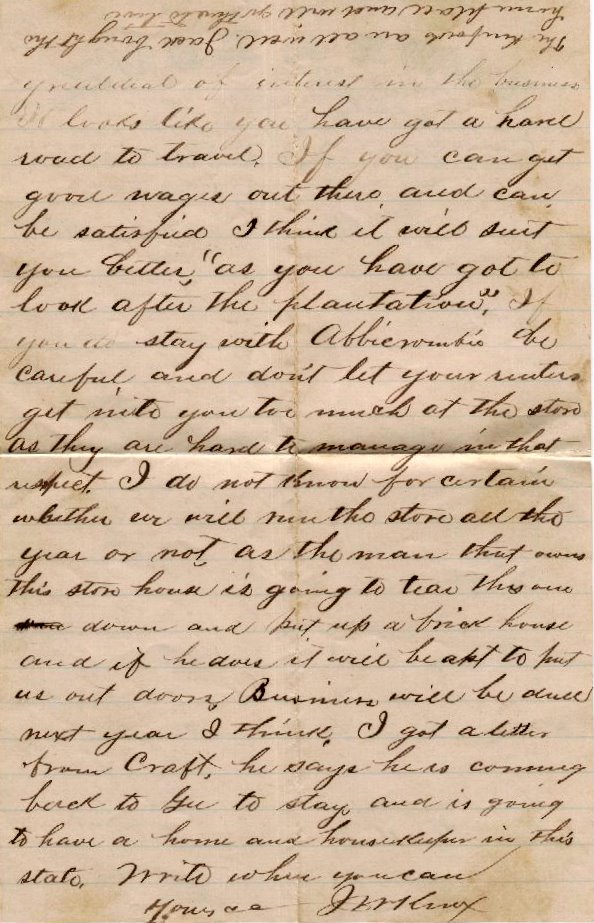 great deal of interest in the business
It looks like you have got a hard
road to travel. If you can get
good wages out there and can
be satisfied I think it will suit
you better, "as you have got to
look after the plantation". If
you do stay with Abbicrombie be
careful and don't let your renters
get into you too much at the store
as they are hard to manage in that
respect. I do not know for certain
whether we will run the store all the
year or not, as the man that owns
this store house is going to tear this one
down and put up a brick house
and if he does it will be apt to put
us out doors, Business will be dull
next year I think. I got a letter
from Craft. he says he is coming
back to to stay and is going
to have a home and housekeeper in this
state. Write when you can
Yours J W Knox
The are all well. Jack bought the
home place and will go there to live